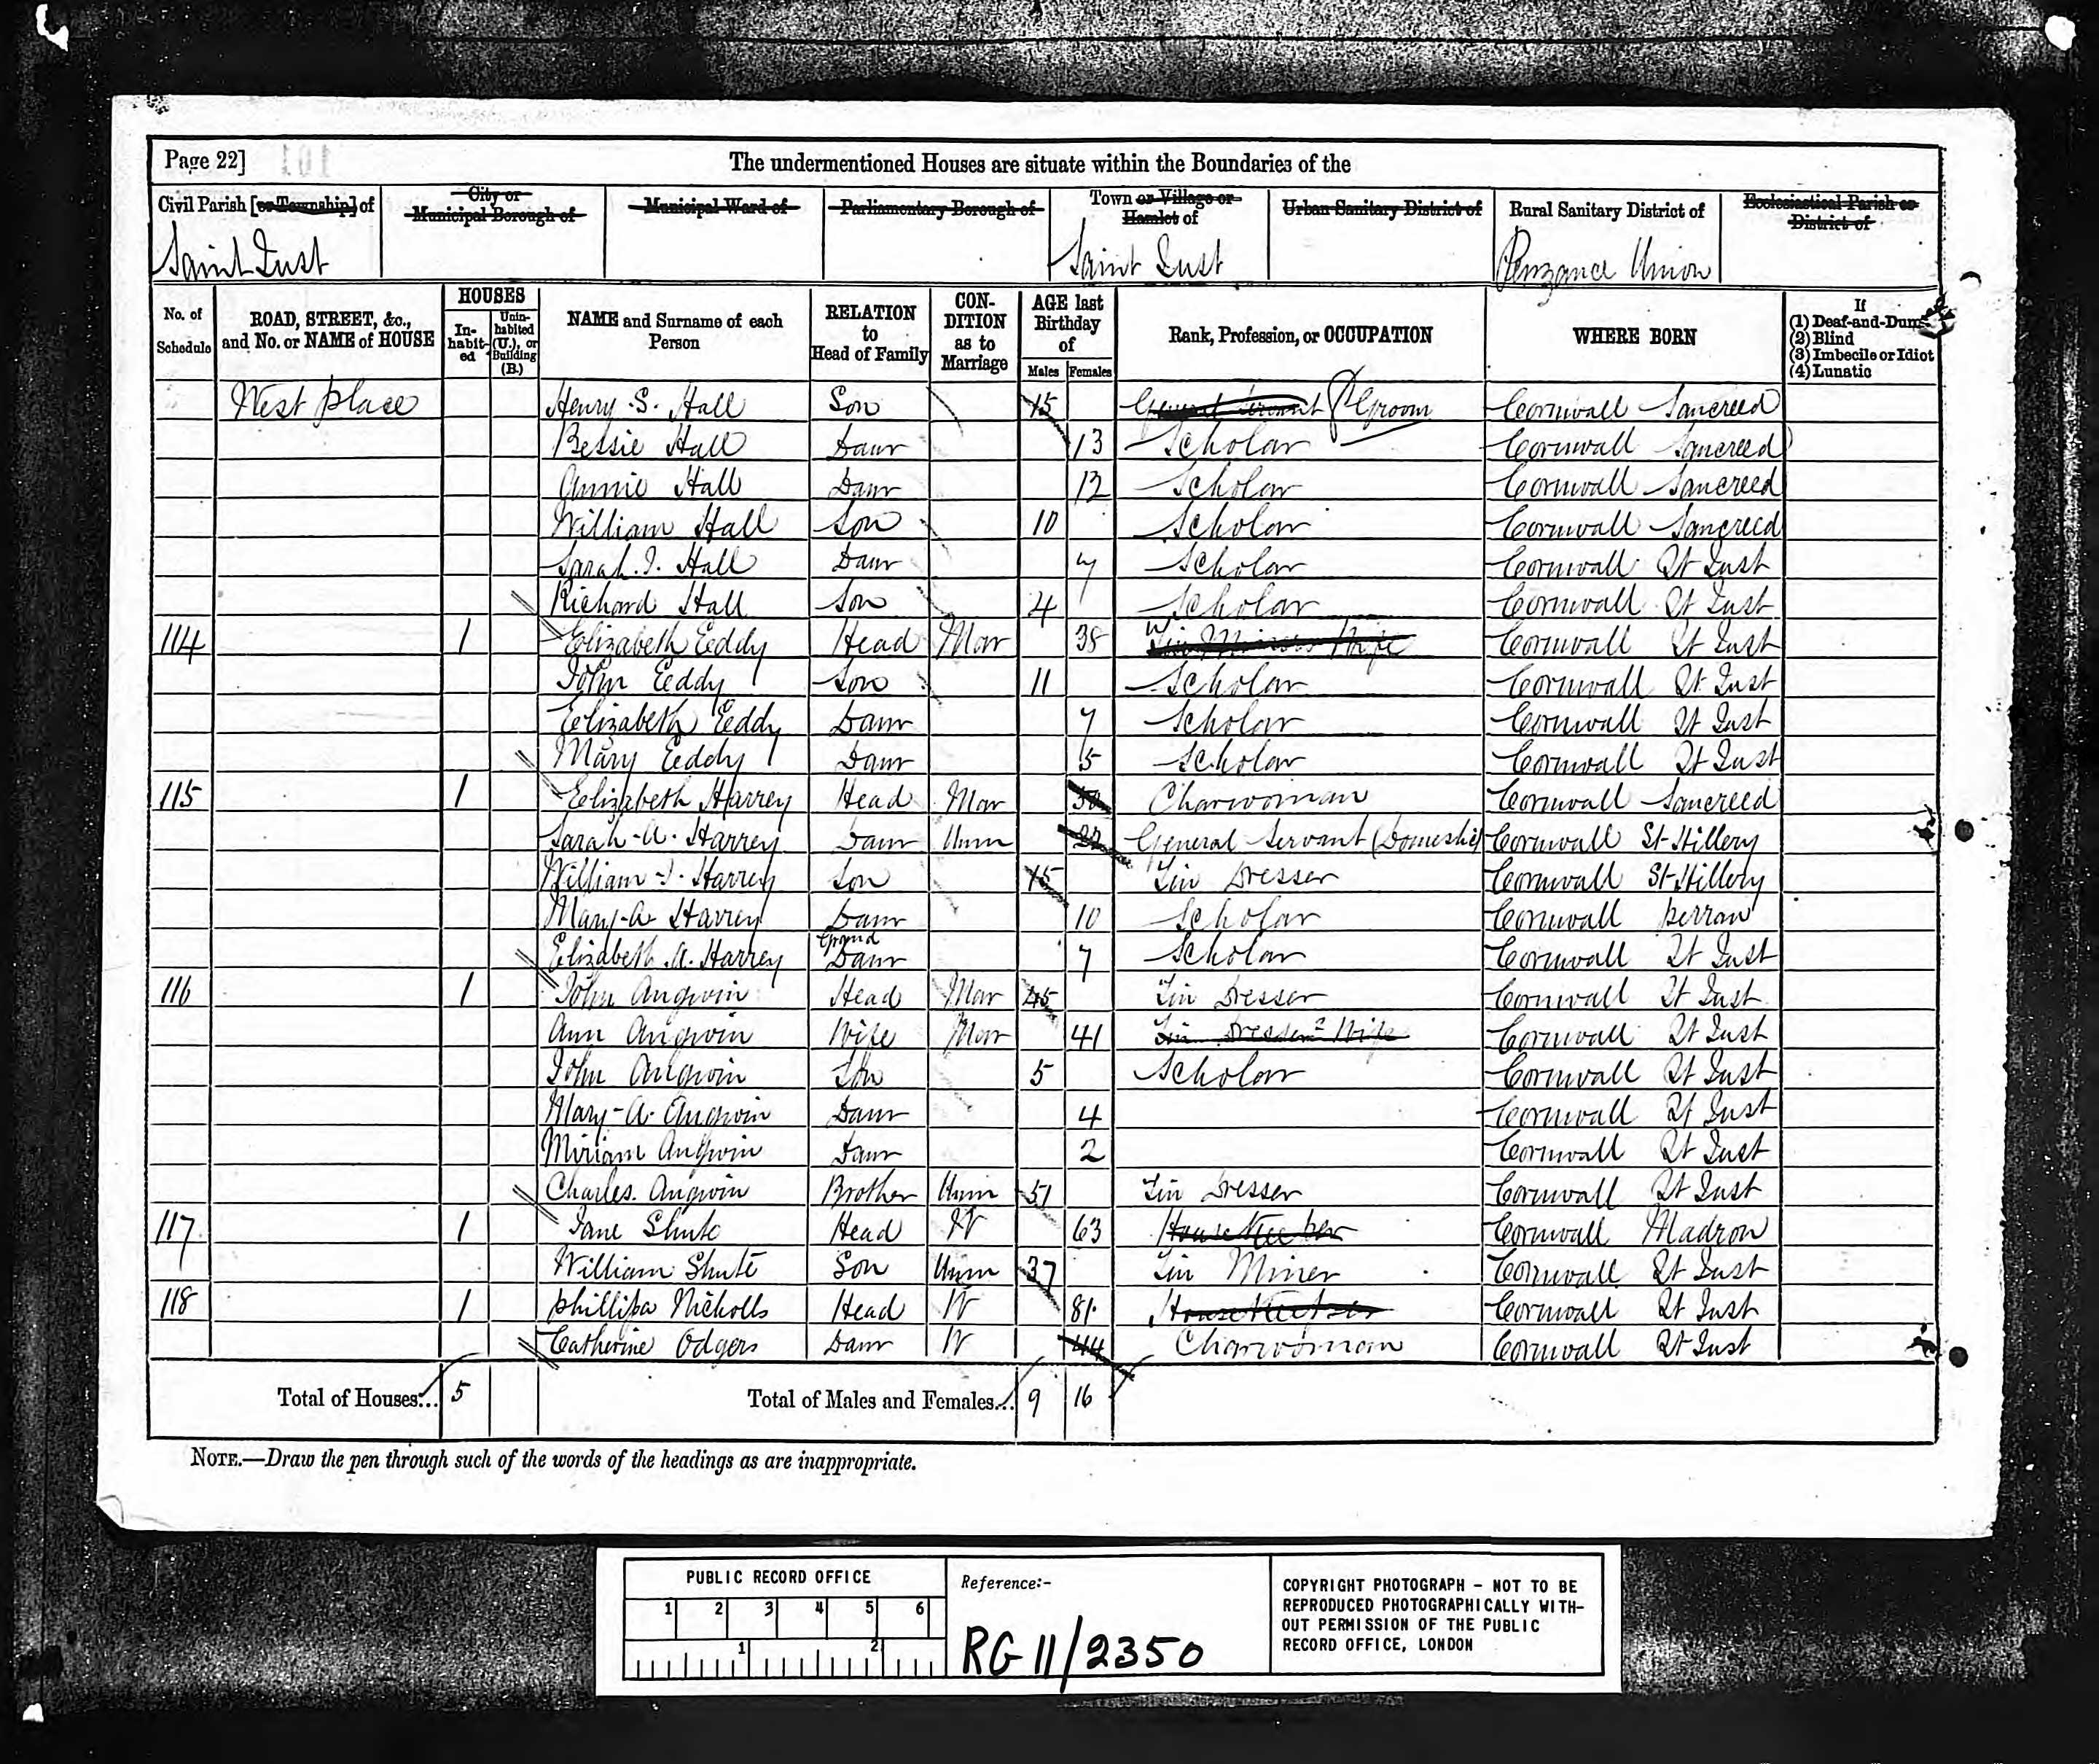 Page 22] The undermentioned Houses are situate within the Boundaries of the
Civil Parish [or Township] of City or Municipal Borough of Municipal Ward of Parliamentary Borough of Town or Village or Hamlet of Urban Sanitary District of Rural Sanitary District of Ecclesiastical Parish or District of
Saint Just Saint Just Penzance Union
No. of Schedule ROAD, STREET, &c., and No. or NAME of HOUSE HOUSES In-habit-ed Unin-habited (U.), or Building (B.) NAME and Surname of each Person RELATION to Head of Family CON-DITION as to Marriage AGE last Birthday of Males Females Rank, Profession, or OCCUPATION WHERE BORN If (1) Deaf-and-Dumb (2) Blind (3) Imbecile or Idiot (4) Lunatic
West place Henry S. Hall Son 15 General Servant Groom Cornwall Sancreed
Bessie Hall Daur 13 Scholar Cornwall Sancreed
Annie Hall Daur 12 Scholar Cornwall Sancreed
William Hall Son 10 Scholar Cornwall Sancreed
Sarah. J. Hall Daur 7 Scholar Cornwall St Just
Richard Hall Son 4 Scholar Cornwall St Just
114 1 Elizabeth Eddy Head Mar 38 Tin Miners Wife Cornwall St Just
John Eddy Son 11 Scholar Cornwall St Just
Elizabeth Eddy Daur 7 Scholar Cornwall St Just
Mary Eddy Daur 5 Scholar Cornwall St Just
115 1 Elizabeth Harrey Head Mar Charwoman Cornwall Sancreed
Sarah-A. Harrey Daur Unm General Servant (Domestic) Cornwall St-Hillery
William J. Harrey Son 15 Tin Dresser Cornwall St-Hillery
Mary-A- Harrey Daur 10 Scholar Cornwall perran
Elizabeth A. Harrey Grand Daur 7 Scholar Cornwall St Just
116 1 John Angwin Head Mar 45 Tin Dresser Cornwall St Just
Ann Angwin Wife Mar 41 Tin Dressers Wife Cornwall St Just
John Angwin Son 5 Scholar Cornwall St Just
Mary-A. Angwin Daur 4 Cornwall St Just
Miriam Angwin Daur 2 Cornwall St Just
Charles. Angwin Brother Unm 51 Tin Dresser Cornwall St Just
117 1 Jane Shute Head W 63 House Keeper Cornwall Madron
William Shute Son Unm 37 Tin Miner Cornwall St Just
118 1 phillipa Nicholls Head W 81 House Keeper Cornwall St Just
Catherine Odgers Daur W 44 Charwoman Cornwall St Just
Total of Houses... 5 Total of Males and Females... 9 16
NOTE.—Draw the pen through such of the words of the headings as are inappropriate.
PUBLIC RECORD OFFICE
1 2 3 4 5 6
1 2
Reference:-
RG 11/2350
COPYRIGHT PHOTOGRAPH - NOT TO BE
REPRODUCED PHOTOGRAPHICALLY WITH-
OUT PERMISSION OF THE PUBLIC
RECORD OFFICE, LONDON